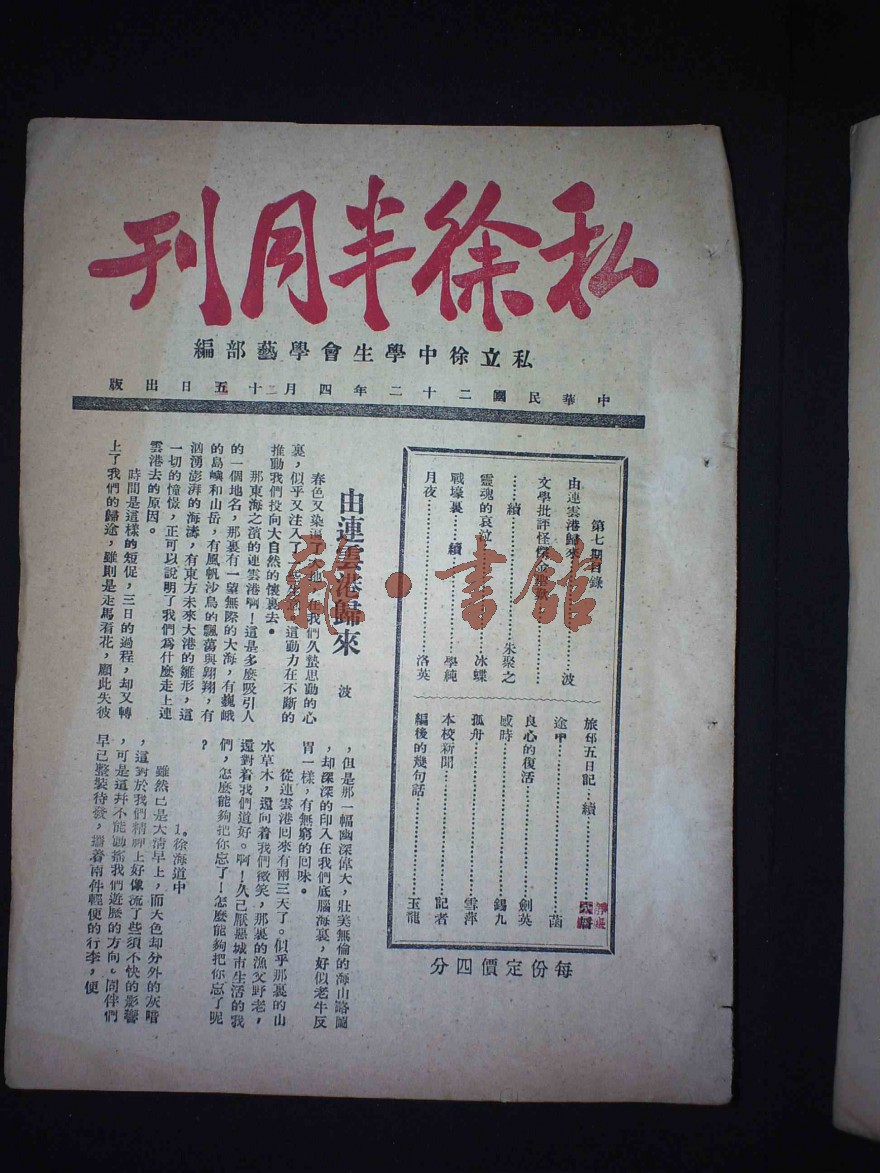 私徐半月刊
私立徐中學生會學藝部編
中華民國二十二年四月二十五日出版
第七期目錄
由連雲港歸來⋯⋯⋯⋯波
文學批評怪傑
續⋯⋯⋯⋯朱聚之
靈魂的哀泣⋯⋯⋯⋯冰蝶
戰壕裏⋯⋯續⋯⋯⋯⋯學純
月夜⋯⋯⋯⋯洛英
旅邳五日記・續⋯⋯⋯⋯
途中⋯⋯⋯⋯菡
良心的復活⋯⋯⋯⋯劍英
感時⋯⋯⋯⋯錫九
孤舟⋯⋯⋯⋯雪萍
本校新聞⋯⋯⋯⋯記者
編後的幾句話⋯⋯⋯⋯玉龍
每份定價四分
由連雲港歸來
波
春色又染遍了大地,在我們久蟄思動的心
裏,似乎又注入了 這動力在不斷的
推動我們投向大自然的懷裏去。
那東海之濱的連雲港啊!這是多麼吸引人
的一個地名,那裏有一望無際的大海,有巍峨
的島嶼和山岳,有風帆沙鳥的飄蕩與翱翔,有
洶湧澎湃的海濤,有東方未來大港的雛形,這
一切的憧憬,正可以說明了我們爲什麼走上連
雲港去的原因。
時間是這樣的短促,三日的過程,却又轉
上了我們的歸途,雖則是走馬看花,顧此失彼
,但是那一幅幽深偉大,壯美無倫的海山畧圖
,却深深的印入在我們底腦海裏,好似老牛反
胃一樣,有無窮的回味。
從連雲港回來有兩三天了。似乎那裏的山
水草木,還向着我們微笑,那裏的漁父野老,
還對着我們道好。啊!久已厭惡城市生活的我
們,怎麼能夠把你忘了!怎麼能夠把你忘了呢
?
1。徐海道中
雖然已是大清早上,而天色却分外的灰暗
,這對於我們精神上好像流了些須不快的影響
,可是這幷不能動搖我們遊歷的方向。同伴們
早已整裝待發,攜着兩件輕便的行李,便
雜·書館